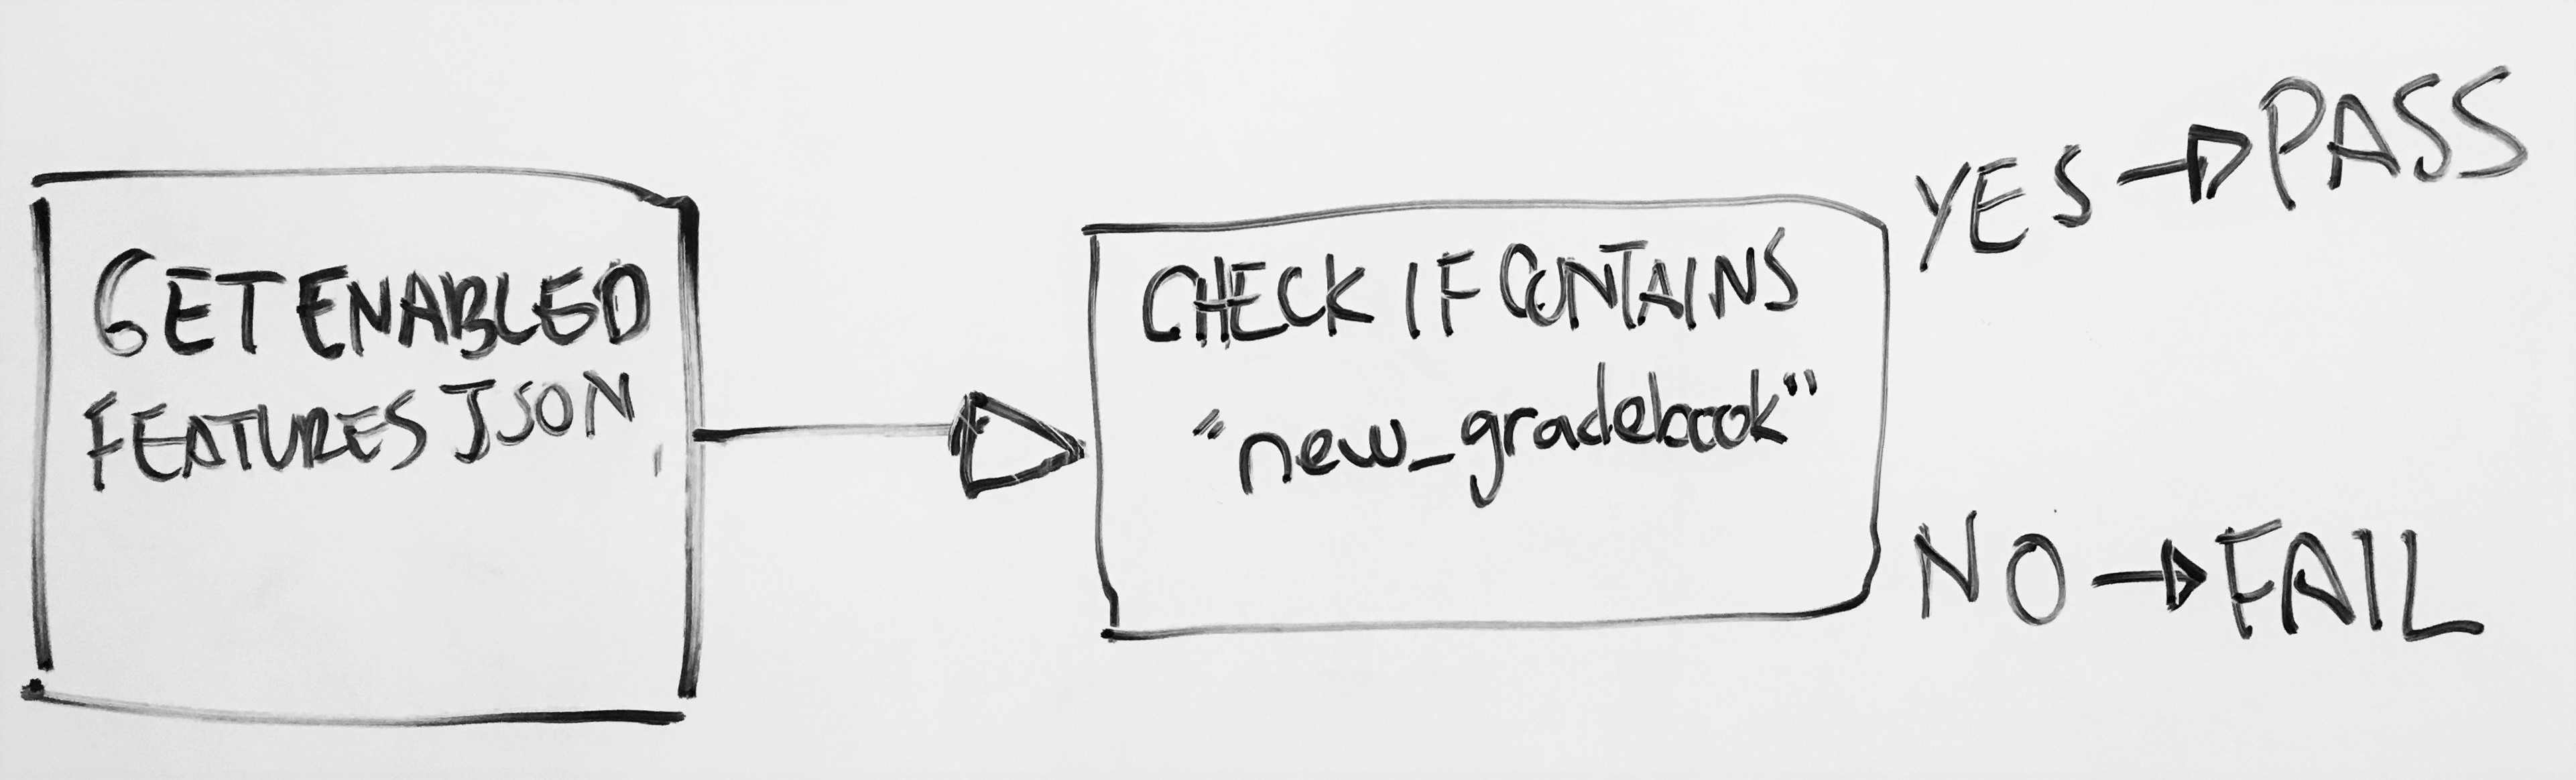 GET ENABLED
FEATURES JSON
CHECK IF CONTAINS
"new_gradebook"
YES → PASS
NO → FAIL